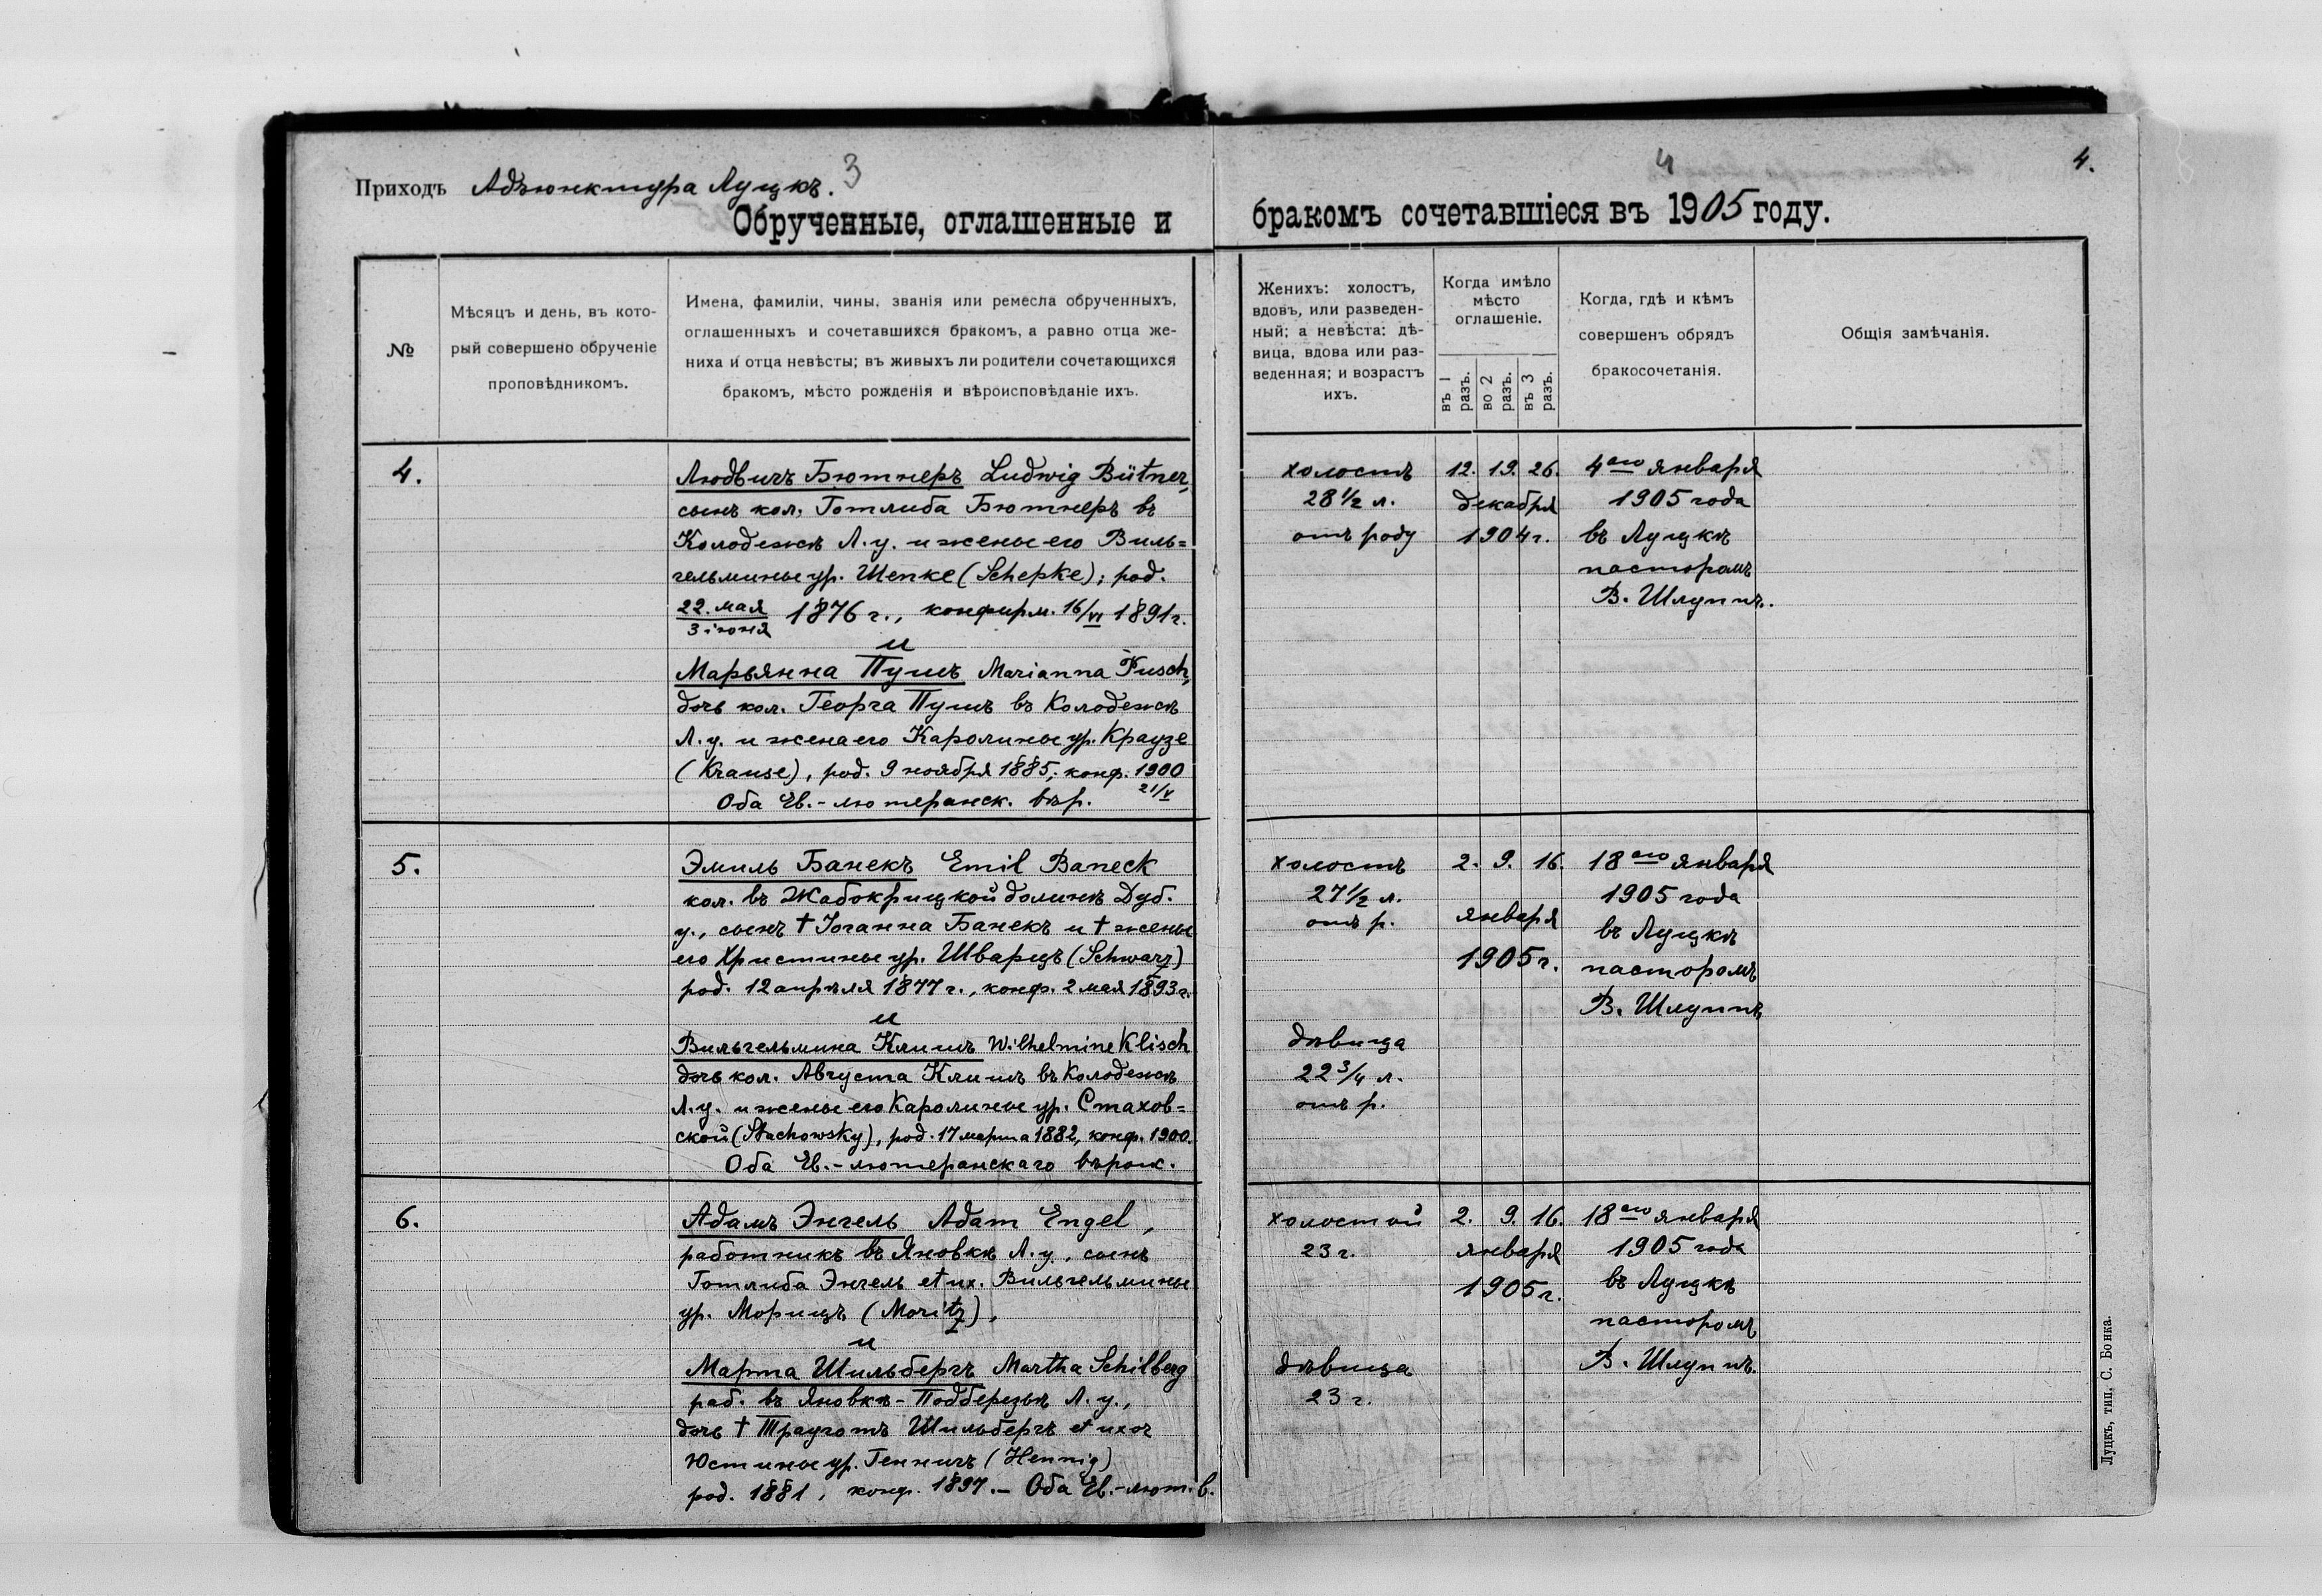 Приходъ Адъюнктура Луцкъ. 3
4
4.
Обрученные, оглашенные и
бракомъ сочетавшіеся въ 1905 году.
№
Мѣсяцъ и день, въ кото-
рый совершено обрученіе
проповѣдникомъ.
Имена, фамиліи, чины, званія или ремесла обрученныхъ,
оглашенныхъ и сочетавшихся бракомъ, а равно отца же-
ниха и отца невѣсты; въ живыхъ ли родители сочетающихся
бракомъ, мѣсто рожденія и вѣроисповѣданіе ихъ.
Женихъ: холостъ,
вдовъ, или разведен-
ный; а невѣста: дѣ-
вица, вдова или раз-
веденная; и возрастъ
ихъ.
Когда имѣло
мѣсто
оглашеніе.
въ 1
разъ.
во 2
разъ.
въ 3
разъ.
Когда, гдѣ и кѣмъ
совершенъ обрядъ
бракосочетанія.
Общія замѣчанія.
4.
Людвигъ Бютнеръ Ludwig Bütner,
сынъ кол. Готлиба Бютнеръ въ
Колодежѣ Л. у. и жены его Виль=
гельмины ур. Шепке (Schepke); род.
22. мая
3 іюня
1876 г., конфирм. 16/VI 1891 г.
и
Марьянна Пушъ Marianna Pusch,
дочь кол. Георга Пушъ въ Колодежѣ
Л. у. и жена его Каролины ур. Краузе
(Krause), род. 9 ноября 1885; конф. 1900
21/V
Оба Ев.-лютеранск. вѣр.
холостъ
28 1/2 л.
отъ роду
12. 19. 26.
декабря
1904 г.
4ого января
1905 года
въ Луцкѣ
пасторомъ
В. Шлуппъ.
5.
Эмиль Банекъ Emil Baneck
кол. въ Жабокрицкой долинѣ Дуб.
у., сынъ † Іоганна Банекъ и † жены
его Христины ур. Шварцъ (Schwarz)
род. 12 апрѣля 1877 г., конф. 2 мая 1893 г.
и
Вильгельмина Клишъ Wilhelmine Klisch
дочь кол. Августа Клишъ въ Колодежѣ
Л. у. и жены его Каролины ур. Стахов=
ской (Stachowsky), род. 17 марта 1882, конф. 1900.
Оба Ев.-лютеранскаго вѣроис.
холостъ
27 1/2 л.
отъ р.
дѣвица
22 3/4 л.
отъ р.
2. 9. 16.
января
1905 г.
18ого января
1905 года
въ Луцкѣ
пасторомъ
В. Шлуппъ
6.
Адамъ Энгель Adam Engel,
работникъ въ Яновкѣ Л. у., сынъ
Готлиба Энгель et ux. Вильгельмины
ур. Морицъ (Moritz),
и
Марта Шильбергъ Martha Schilberg
раб. въ Яновкѣ-Подберезьѣ Л. у.,
дочь † Траугота Шильбергъ et uxor
Юстины ур. Геннигъ (Hennig)
род. 1881, конф. 1897. — Оба Ев.-лют. в.
холостой
23 г.
дѣвица
23 г.
2. 9. 16.
января
1905 г.
18ого января
1905 года
въ Луцкѣ
пасторомъ
В. Шлуппъ.
Луцкъ, тип. С. Бонка.